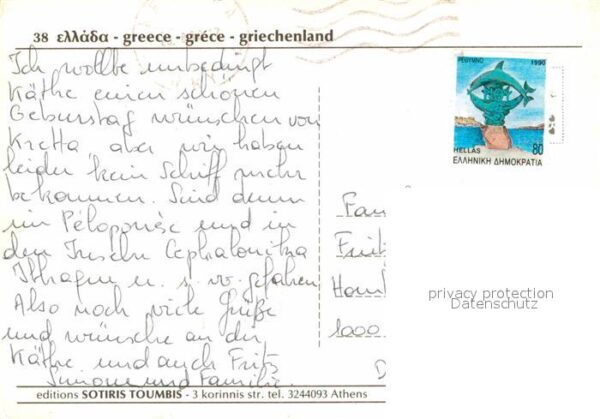 38 ελλάδα - greece - gréce - griechenland
Ich wollte unbedingt
Käthe einen schönen
Geburstag wünschen von
Kretta aber wir haben
leider kein Schiff mehr
bekommen. Sind dann
im Péloponèse und in
den Inseln Cephalonika
Ithaque u. s. w. gefahren
Also noch viele Grüße
und wünsche an die
Käthe und auch Fritz
Simone und Familie.
ΡΕΘΥΜΝΟ 1990
HELLAS 80
ΕΛΛΗΝΙΚΗ ΔΗΜΟΚΡΑΤΙΑ
Fam
Fritz
Hom
1000
D
privacy protection
Datenschutz
editions SOTIRIS TOUMBIS - 3 korinnis str. tel. 3244093 Athens